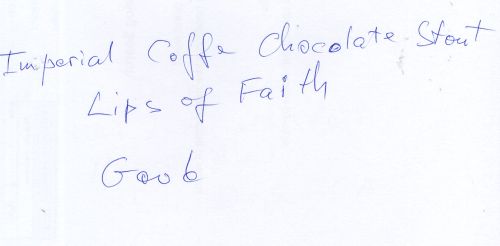 Imperial Coffe Chocolate Stout
Lips of Faith